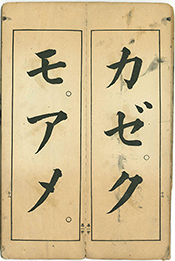 カゼ。ク
モ。アメ。